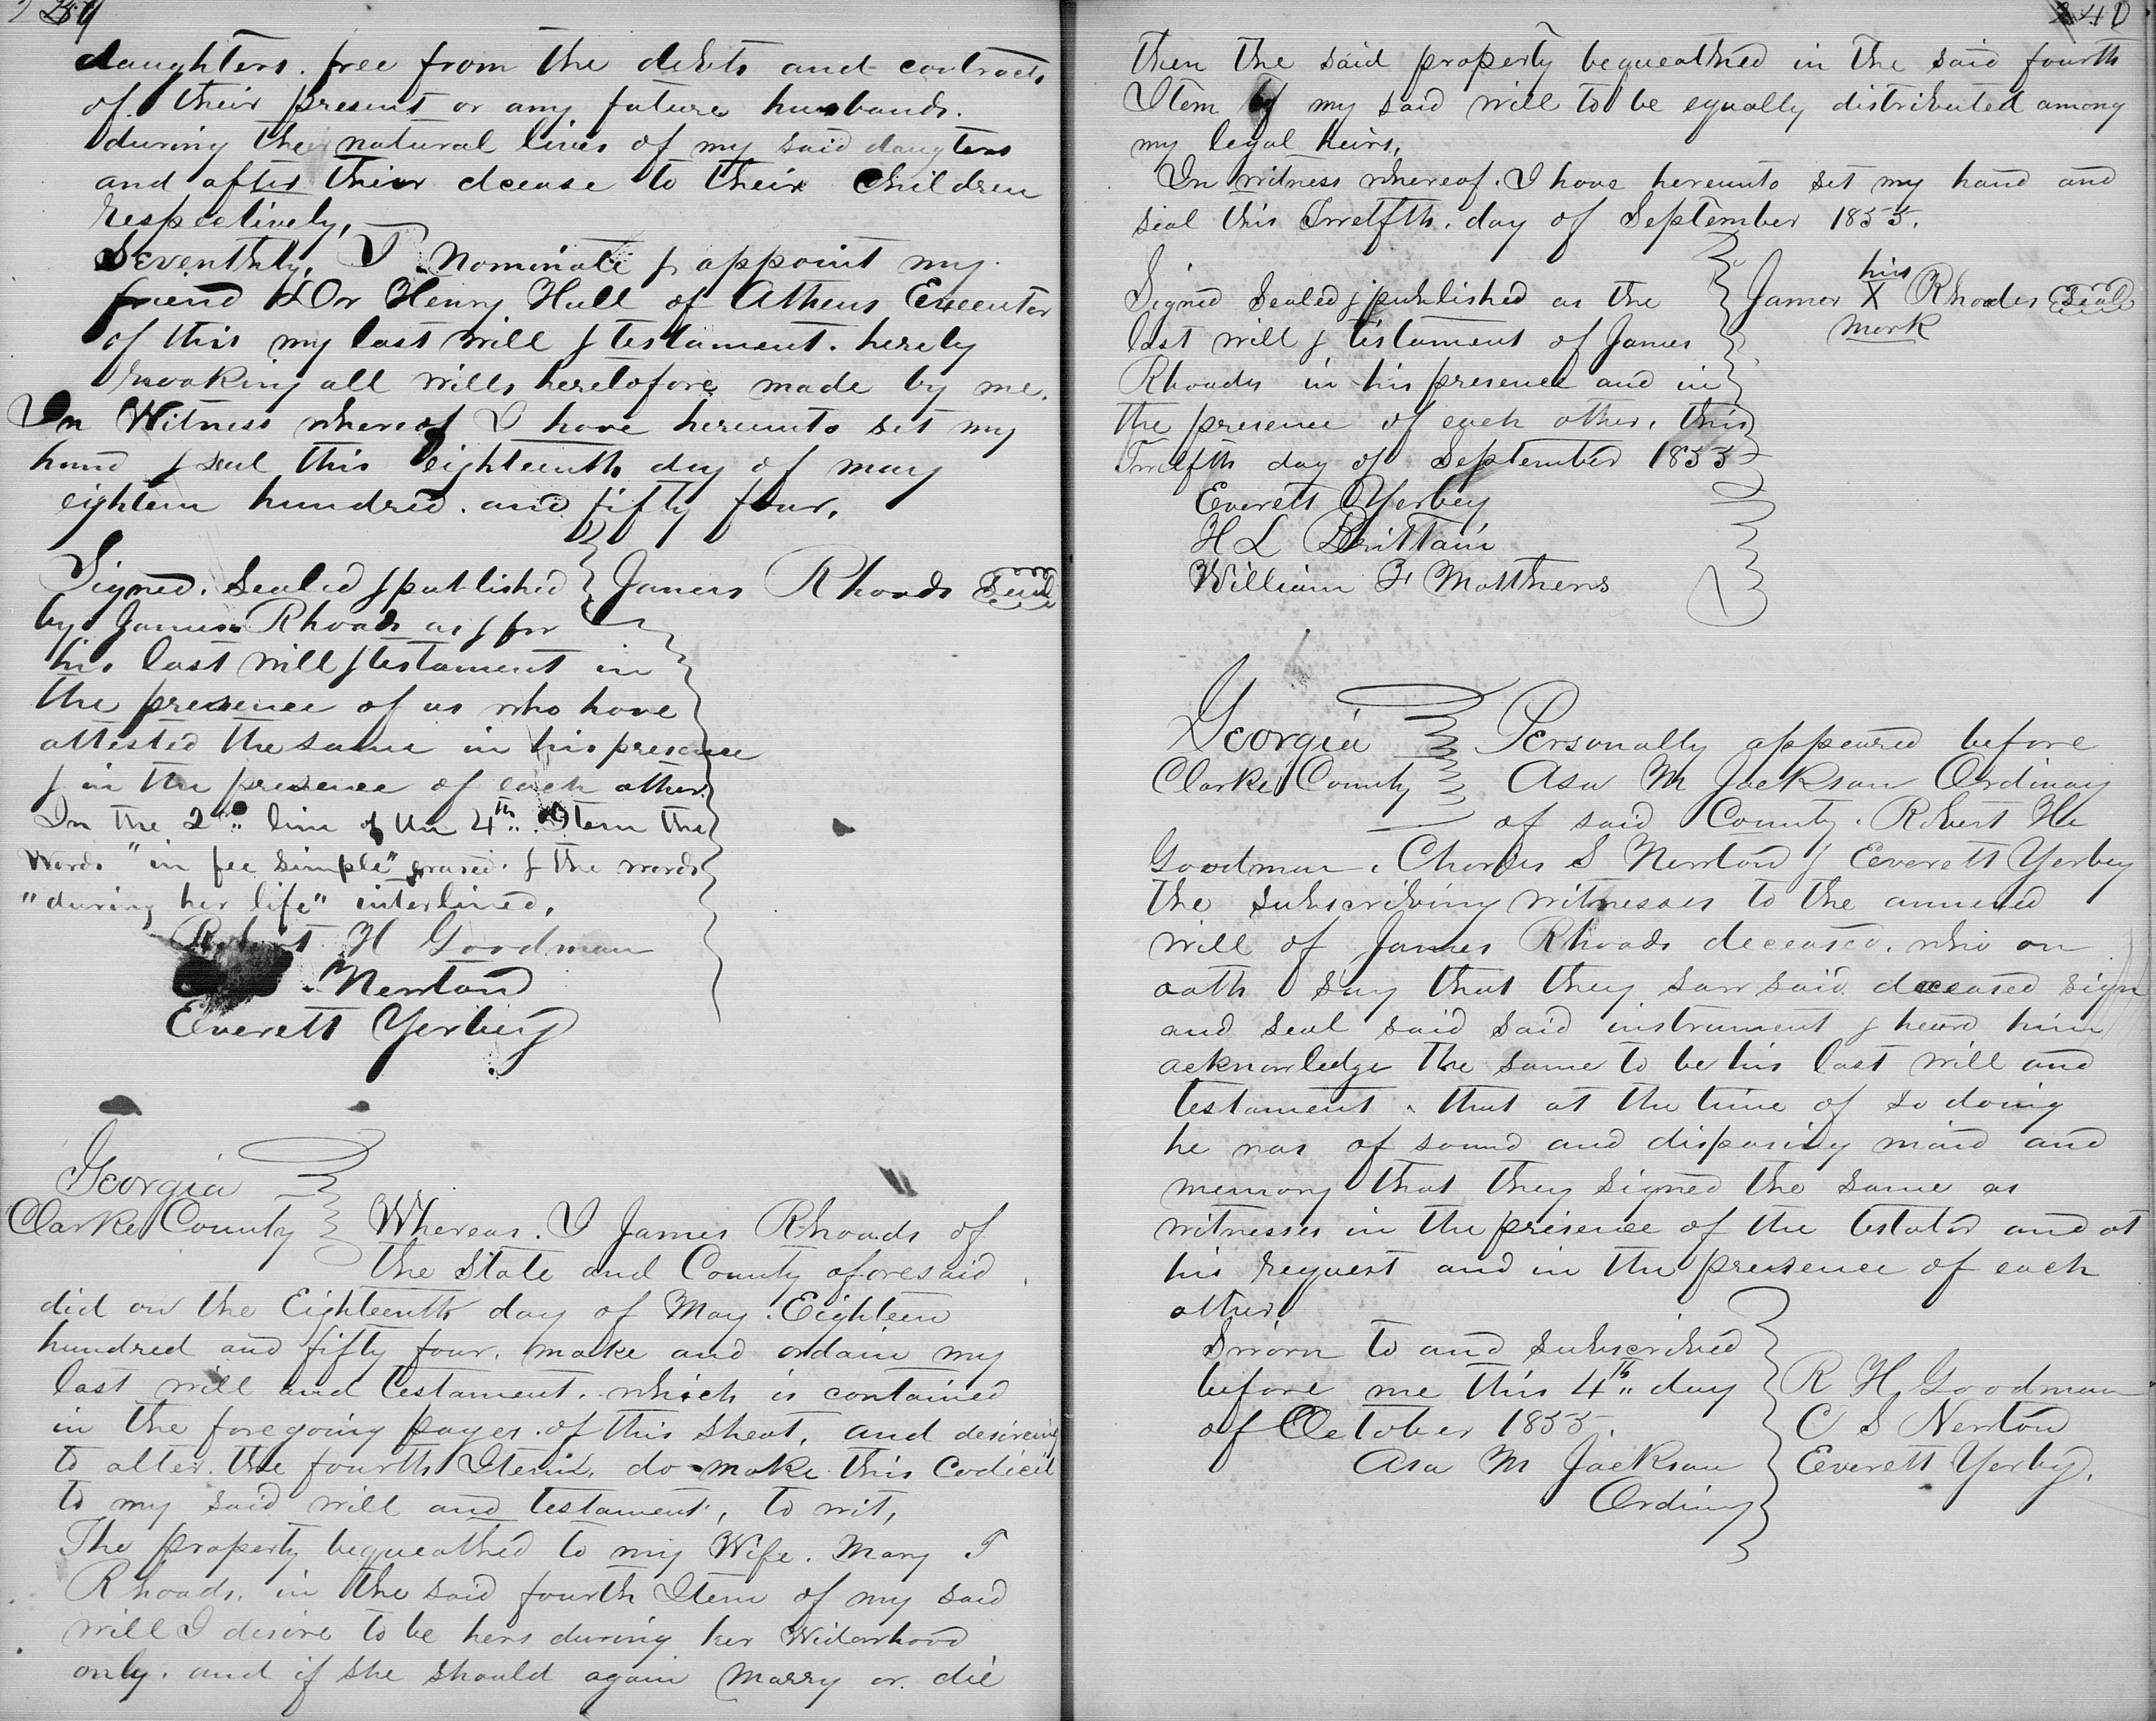 239
daughters. free from the debts and contracts
of their present or any future husbands.
during the natural lives of my said daugters
and after their decease to their Children
respectively,
Seventhly, I Nominate & appoint my
friend Dr Henry Hull of Athens Executor
of this my last will & testament. hereby
revoking all wills heretofore made by me.
In Witness whereof I have hereunto set my
hand & seal this eighteenth day of may
eighteen hundred. and fifty four.
Signed. Sealed & published
James Rhoads Seal
by James Rhoads as & for
his last will & testament in
the presence of us who have
attested the same in his presence
& in the presence of each other
In the 2nd line of the 4th Item the
Words "in fee simple" erased. & the words
"during her life" interlined,
Robert H Goodman
Newton
Everett Yerbey
Georgia
Clarke County Whereas. I James Rhoads of
the State and County aforesaid
did on the Eighteenth day of May. Eighteen
hundred and fifty four. make and ordain my
last will and testament. which is contained
in the foregoing pages of this sheat, and desireing
to alter the fourth Item. do make this Codicil
to my said will and testament, to wit,
The property bequeathed to my Wife. Mary T
Rhoads. in the said fourth Item of my said
will I desire to be hers during her Widowhood
only. and if she should again marry or die
240
then the said property bequeathed in the said fourth
Item of my said will to be equally distributed among
my legal heirs,
In witness whereof. I have hereunto set my hand and
seal this Twelfth. day of September 1855.
Signed Sealed & published as the
last will & testament of James
Rhoads in his presence and in
the presence of each other, this
Twelfth day of September 1855
his
James X Rhoades Seal
mark
Everett Yerbey
H L Brittain
William F Matthews
Georgia
Clarke County
Personally appeared before
Asa M Jackson Ordinary
of said County. Robert He
Goodman. Charles S Newton & Everett Yerbey
the subscribing witnesses to the annexed
will of James Rhoads deceased. who on
oath say that they saw said deceased sign
and seal said said instrument & heard him
acknowledge the same to be his last will and
testament. that at the time of so doing
he was of sound and disposing mind and
memory that they signed the same as
witnesses in the presence of the testator and at
his request and in the presence of each
other.
Sworn to and subscribed
before me this 4th day
of October 1855.
Asa M Jackson
Ordinary
R H Goodman
C S Newton
Everett Yerby.